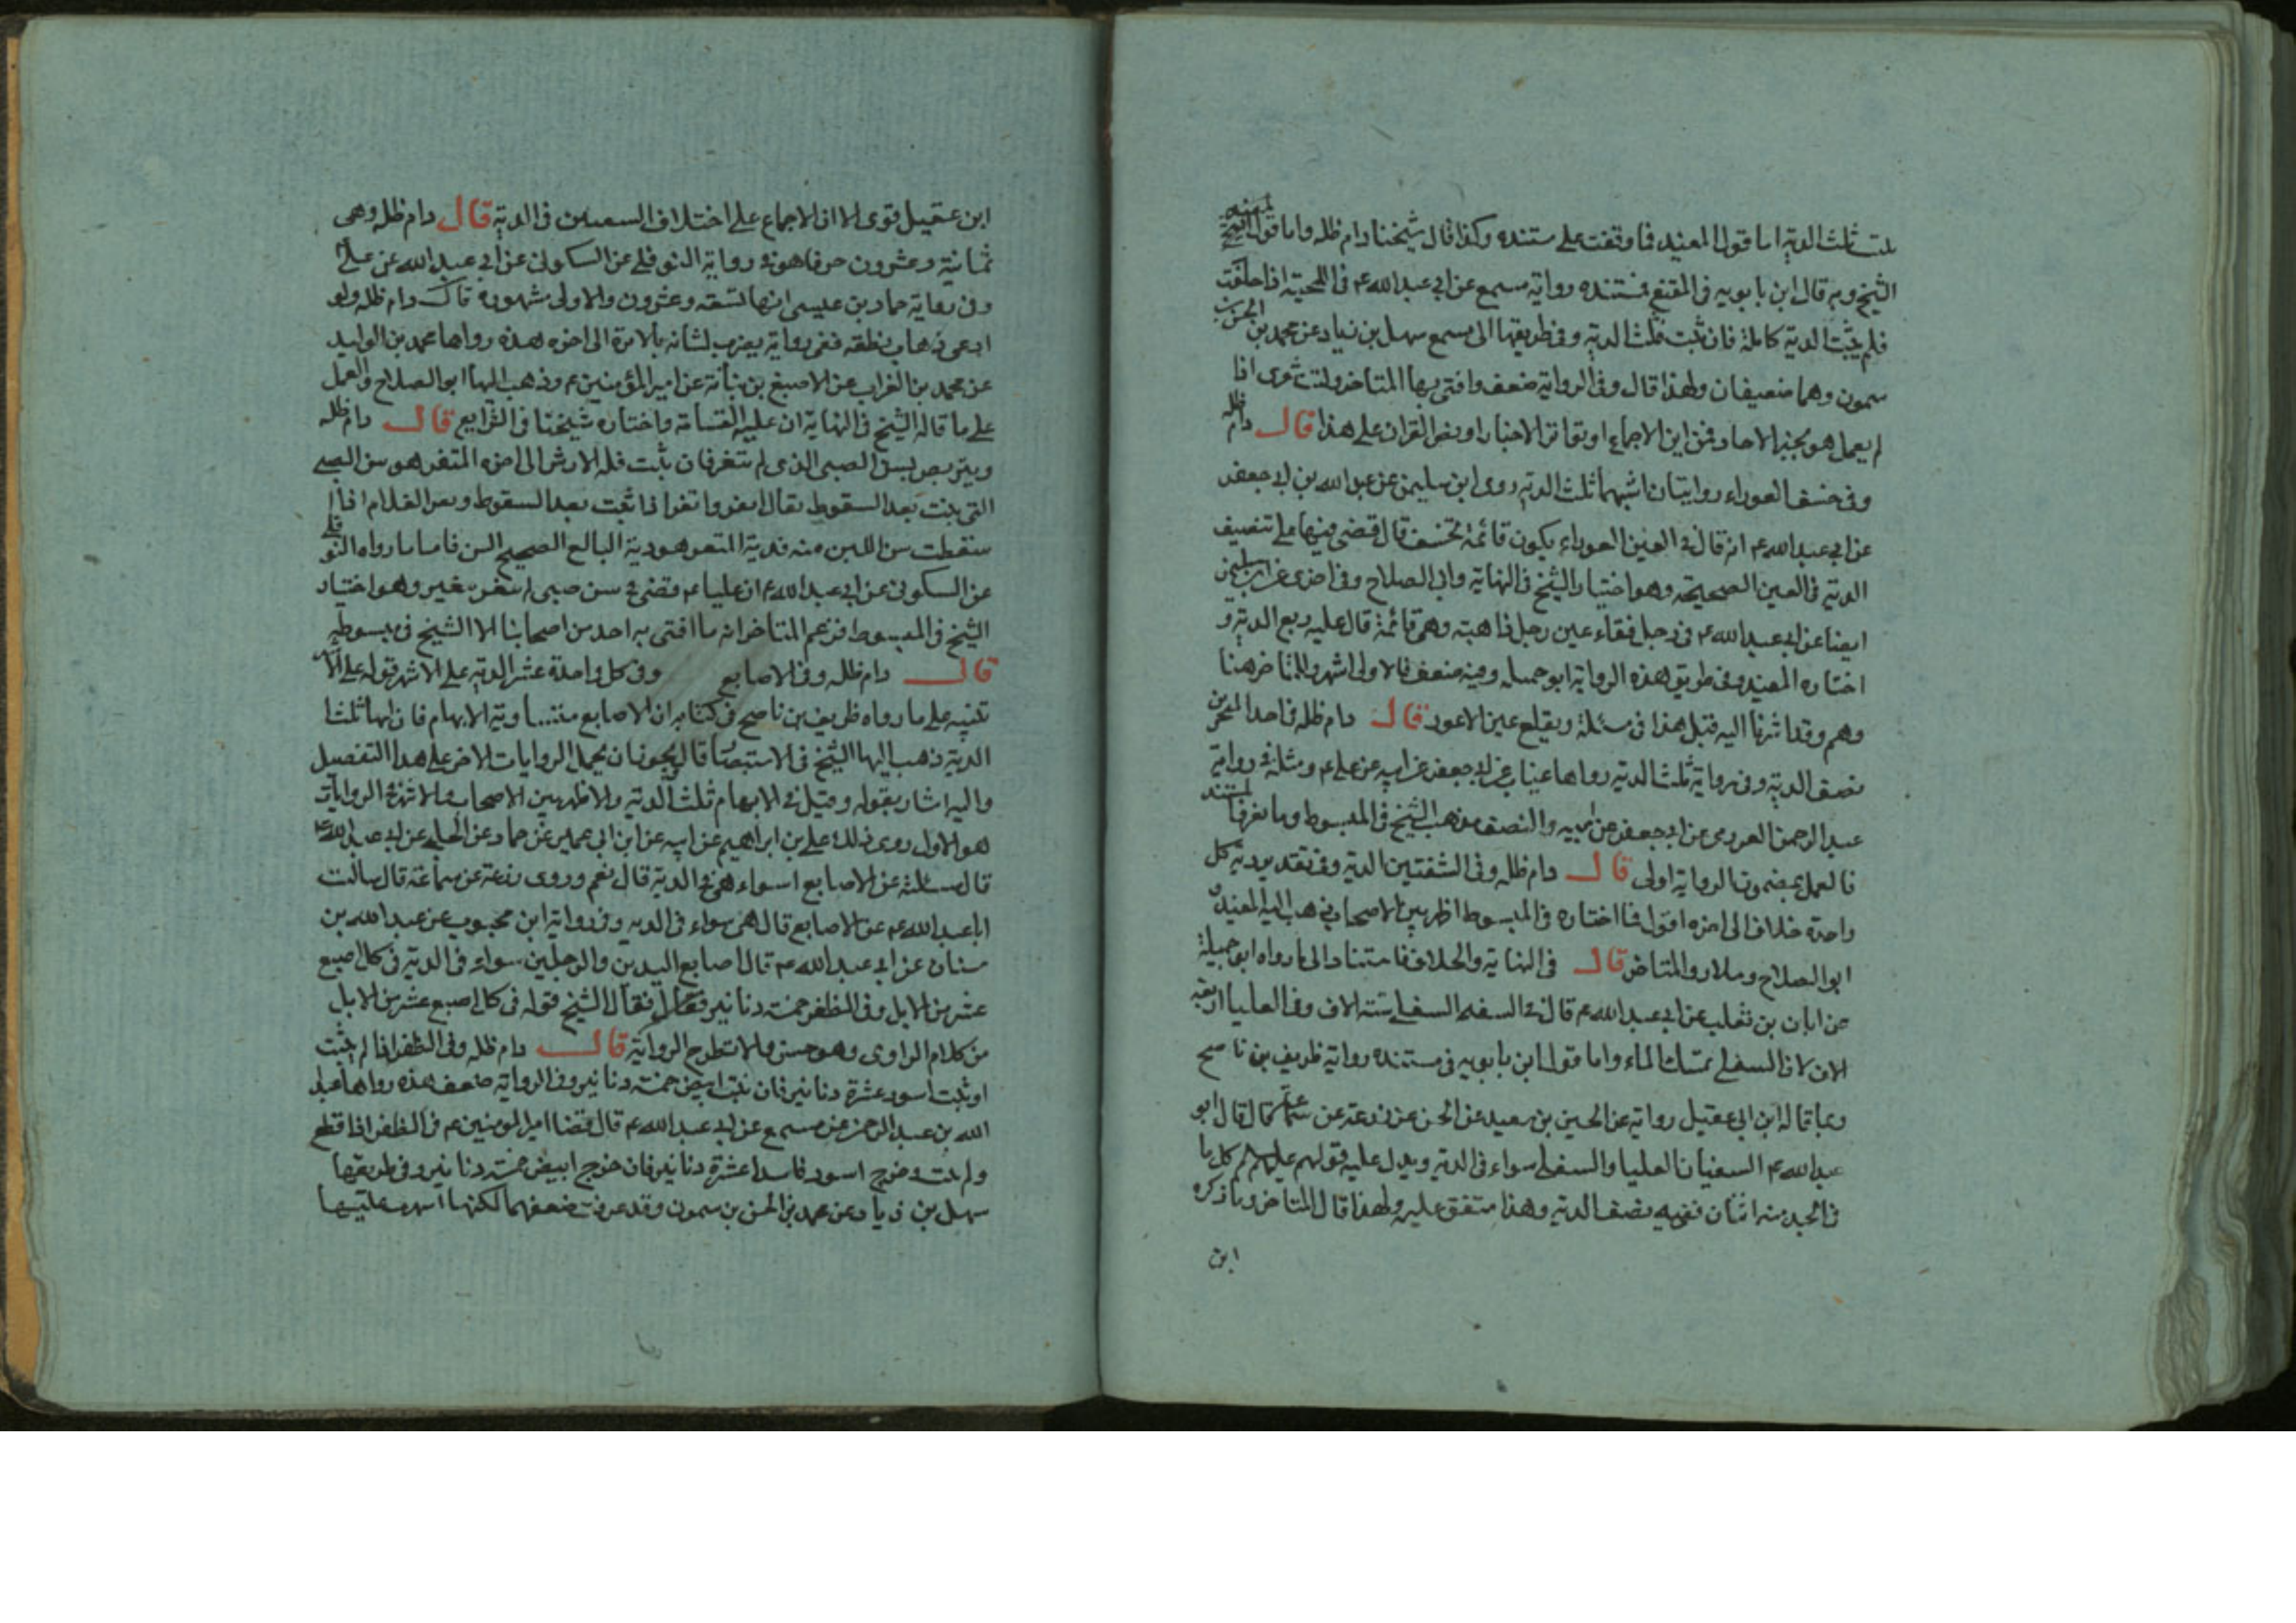 ثلث الدية اما قول المفيد فما وقفت على مستنده وكذا قال شيخنا دام ظله واما قول الشيخ
الشيخ وبه قال ابن بابويه في المقنع فمستنده رواية مسمع عن ابي عبد الله ع في اللحية اذا حلقت
فلم ينبت الدية كاملة فان نبت فثلث الدية وفي طريقها الى مسمع سهل بن زياد عن محمد بن الحسن بن
شمون وهما ضعيفان ولهذا قال وفي الرواية ضعف وافتى بها المتاخر وليت شعري اذا
لم يعمل هو بخبر الاحاد فمن اين الاجماع او تواتر الاخبار او نص القران على هذا قال دام ظله
وفي خسف العوراء روايتان اشبههما ثلث الدية روى ابن سليمن عن عبد الله بن ابي جعفر
عن ابي عبد الله ع انه قال في العين العوراء يكون قائمة تخسف قال قضى فيها علي نصف
الدية في العين الصحيحة وهو اختيار الشيخ في النهاية وابي الصلاح وفي اخرى عن ابن سليمن
ايضا عن ابي عبد الله ع في رجل فقاء عين رجل ذاهبة وهي قائمة قال عليه ربع الدية و
اختاره المفيد وفي طريق هذه الرواية ابو جميلة وفيه ضعف فالاولى اشهر وللمتاخر هنا
وهم وقد اشرنا اليه قبل هذا في مسئلة ويقلع عين الاعور قال دام ظله في احد المنخرين
نصف الدية وفي رواية ثلث الدية رواها غياث عن ابي جعفر عن ابيه عن علي ع ومثله في رواية
عبد الرحمن العرزمي عن ابي جعفر عن ابيه والنصف مذهب الشيخ في المبسوط وما نعرف المستند
فالعمل بمضمون الرواية اولى قال دام ظله وفي الشفتين الدية وفي تقدير دية كل
واحدة خلاف الى اخره اقول فما اختاره في المبسوط اظهر بين الاصحاب ذهب اليه المفيد و
ابو الصلاح وسلار والمتاخر قال في النهاية والخلاف فاستنادا الى ما رواه ابو جميلة
عن ابان بن تغلب عن ابي عبد الله ع قال في السفه السفلى ستة الاف وفي العليا اربعة
الاف لان السفلى تمسك الماء واما قول ابن بابويه في مستنده رواية ظريف بن ناصح
وما قاله ابن ابي عقيل رواية عن الحسين بن سعيد عن الحسن عن زرعة عن سماعة قال قال ابو
عبد الله ع السفتان العليا والسفلى سواء في الدية ويدل عليه قولهم عليهم السلم كل ما
في الجسد منه اثنان ففيه نصف الدية وهذا متفق عليه ولهذا قال المتاخر وما ذكره
ابن
ابن عقيل قوى الا ان الاجماع على اختلاف السفتين في الدية قال دام ظله وهي
ثمانية وعشرون حرفا هو في رواية النوفلي عن السكوني عن ابي عبد الله عن علي
وفي رواية حماد بن عيسى انها تسعة وعشرون والاولى مشهورة قال دام ظله ولو
ادعى ذهاب نطقه ففي رواية يضرب لسانه بالابرة الى اخره هذه رواها محمد بن الوليد
عن محمد بن الفرات عن الاصبغ بن نباتة عن امير المؤمنين ع وذهب اليها ابو الصلاح والعمل
على ما قاله الشيخ في النهاية ان عليه القسامة واختاره شيخنا في الشرايع قال دام ظله
ويتربص بسن الصبي الذي لم يثغر فان نبت فله الارش الى اخره المثغر هو سن الصبي
التي نبت بعد السقوط يقال اثغر واتغر اذا نبت بعد السقوط وثغر الغلام اذا
سقطت سن اللبن منه فدية المثغر هو دية البالغ الصحيح السن فاما ما رواه النوفلي
عن السكوني عن ابي عبد الله ع ان عليا ع قضى في سن صبي لم يثغر ببعير وهو اختيار
الشيخ في المبسوط فزعم المتاخر انه ما افتى به احد من اصحابنا الا الشيخ في مبسوطه
قال دام ظله وفي الاصابع وفي كل واحدة عشر الدية على الاشهر قوله على الاشهر
تنبيه على ما رواه ظريف بن ناصح في كتابه ان الاصابع متساوية الا الابهام فان لها ثلث
الدية ذهب اليها الشيخ في الاستبصار قال يجوز ان يحمل الروايات الاخر على هذا التفصيل
واليه اشار بقوله وقيل في الابهام ثلث الدية والاظهر بين الاصحاب والاشهر في الروايات
هو الاول روى ذلك علي بن ابراهيم عن ابيه عن ابن ابي عمير عن حماد عن الحلبي عن ابي عبد الله ع
قال سالته عن الاصابع اسواء هي في الدية قال نعم وروى زرعة عن سماعة قال سالت
ابا عبد الله ع عن الاصابع قال هي سواء في الدية وفي رواية ابن محبوب عن عبد الله بن
سنان عن ابي عبد الله ع قال اصابع اليدين والرجلين سواء في الدية في كل اصبع
عشر من الابل وفي الظفر خمسة دنانير فقال الشيخ قوله في كل اصبع عشر من الابل
من كلام الراوي وهو حسن ولا تطرح الرواية قال دام ظله وفي الظفر اذا لم ينبت
او نبت اسود عشرة دنانير فان نبت ابيض خمسة دنانير وفي الرواية ضعف هذه رواها عبد
الله بن عبد الرحمن عن مسمع عن ابي عبد الله ع قال قضا امير المومنين ع في الظفر اذا قطع
ولم ينبت وخرج اسود فاسدا عشرة دنانير فان خرج ابيض خمسة دنانير وفي طريقها
سهل بن زياد عن محمد بن الحسن بن شمون وقد عرفت ضعفهما لكنها